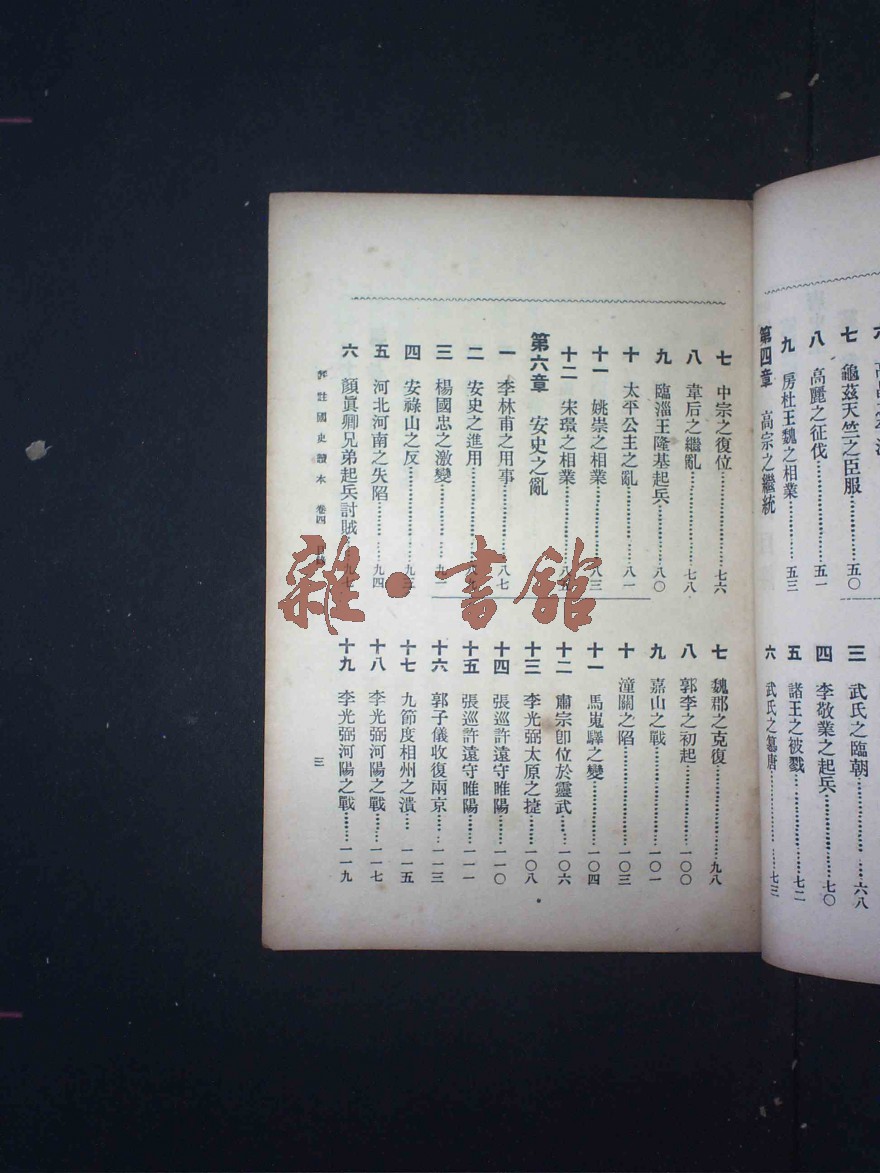 七 龜茲天竺之臣服 五〇
八 高麗之征伐 五一
九 房杜王魏之相業 五三
第四章 高宗之繼統
三 武氏之臨朝 六八
四 李敬業之起兵 七〇
五 諸王之被戮 七二
六 武氏之篡唐 七三
七 中宗之復位 七六
八 韋后之繼亂 七八
九 臨淄王隆基起兵 八〇
十 太平公主之亂 八一
十一 姚崇之相業 八三
十二 宋璟之相業 八五
第六章 安史之亂
一 李林甫之用事 八七
二 安史之進用 八九
三 楊國忠之激變 九一
四 安祿山之反 九三
五 河北河南之失陷 九四
六 顏眞卿兄弟起兵討賊 九七
七 魏郡之克復 九八
八 郭李之初起 一〇〇
九 嘉山之戰 一〇一
十 潼關之陷 一〇三
十一 馬嵬驛之變 一〇四
十二 肅宗卽位於靈武 一〇六
十三 李光弼太原之捷 一〇八
十四 張巡許遠守睢陽 一一〇
十五 張巡許遠守睢陽 一一一
十六 郭子儀收復兩京 一一三
十七 九節度相州之潰 一一五
十八 李光弼河陽之戰 一一七
十九 李光弼河陽之戰 一一九
評註國史讀本 卷四 目錄 三
雜·書館